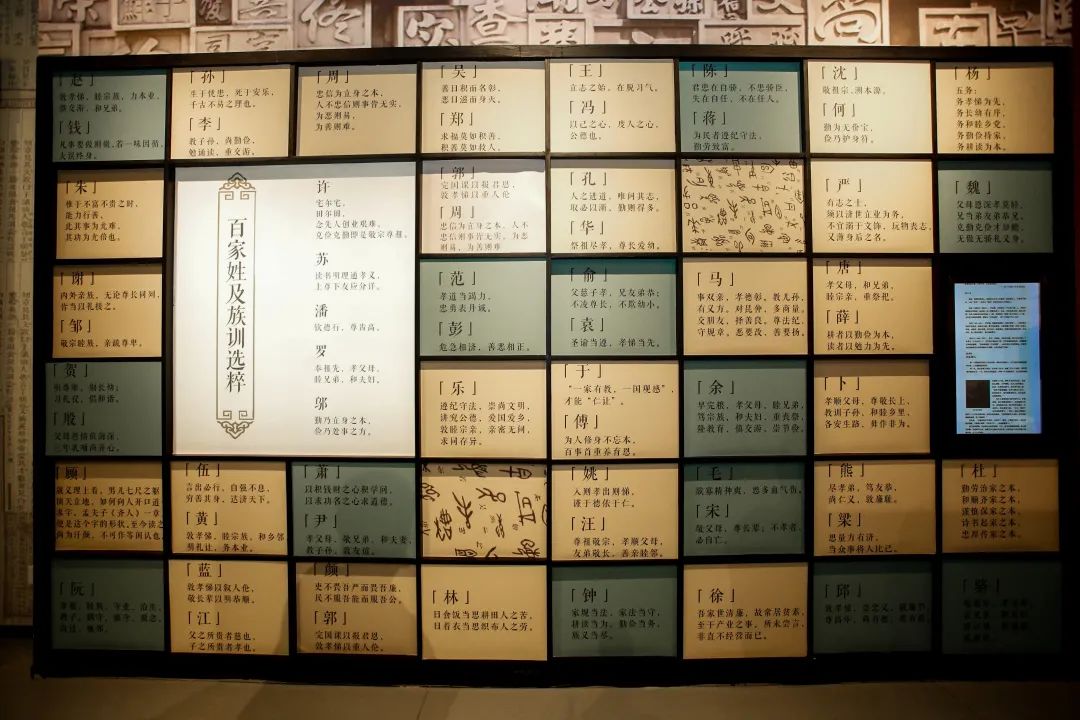 赵
敦孝悌，睦宗族，力本业，
慎交游，和兄弟。
钱
凡事要做则做，若一味因循，
大误终身。
孙
生于忧患，死于安乐，
千古不易之理也。
李
教子孙，尚勤俭，
勉诵读，重交游。
周
忠信为立身之本，
人不忠信则事皆无实，
为恶则易，
为善则难。
吴
善日积而名彰，
恶日滋而身灭。
郑
求福莫如积善，
积善莫如救人。
王
立志之始，在脱习气。
冯
以己之心，度人之心，
公德也。
陈
君忠在自骄，不忠骄臣，
失在自任，不在任人。
蒋
为民者遵纪守法，
勤劳致富。
沈
敬祖宗，溯本源。
何
勤为无价宝，
俭乃护身符。
杨
五务：
务孝悌为先，
务长幼有序，
务和睦乡党，
务勤俭持家，
务耕读为本。
朱
惟于不富不贵之时，
能力行善，
此其事为尤难，
其功为尤倍也。
百家姓及族训选粹
许
宅尔宅，
田尔田，
念先人创业艰难，
克俭克勤即是敬宗尊祖。
苏
读书明理通孝义，
上尊下友应分详。
潘
饮德行，尊齿高。
罗
奉祖先，孝父母，
睦兄弟，和夫妇。
邬
勤乃立身之本，
俭乃处事之方。
郭
完国课以报君恩，
敦孝悌以重人伦
周
忠信为立身之本，人不
忠信则事皆无实，为恶
则易，为善则难
孔
人之进道，唯问其志，
取必以渐，勤则得多。
华
祭祖尽孝，尊长爱幼。
严
有志之士，
须以济世立业为务，
不宜溺于文饰，玩物丧志，
又薄身后之名。
魏
父母恩深孝莫轻，
兄当弟友弟恭兄，
克勤克俭才是德，
无傲无骄礼义身。
谢
内外亲族，无论尊长同列，
皆当以礼接之。
邹
敬宗睦族，亲疏尊卑。
范
孝道当竭力，
忠勇表丹诚。
彭
危急相济，善恶相正。
俞
父慈子孝，兄友弟恭；
不凌尊长，不欺幼小。
袁
圣谕当遵，孝悌当先。
马
事双亲，孝德彰，教儿孙，
有义方。对民众，多商量。
交朋友，择善良，尊法纪，
守规章。恶要改，善要扬。
唐
孝父母，和兄弟，
睦宗亲，重祭祀。
薛
耕者以勤俭为本，
读者以勉力为先。
贺
明尊卑，别长幼；
习礼仪，倡和谐。
殷
乐
遵纪守法，崇尚文明，
讲究公德，爱国爱乡，
敦睦宗亲，亲密无间，
求同存异。
于
“一家有教，一国观感”，
才能“仁让”。
傅
为人修身不忘本，
百事首重养育恩。
余
早完粮，孝父母，睦兄弟，
笃宗族，和夫妇，重丧祭，
隆教育，慎交游，崇节俭。
卜
孝顺父母，尊敬长上，
教训子孙，和睦乡里，
各安生路，弗作非为。
顾
伍
言出必行，自强不息，
穷善其身，达济天下。
黄
敦孝悌，睦宗族，和乡邻，
明礼让，务本业。
萧
以积钱财之心积学问，
以求功名之心求道德。
尹
孝父母，敬兄弟，和夫妻，
教子孙，敦友谊。
姚
入则孝出则悌，
谨于德依于仁。
汪
尊祖敬宗，孝顺父母，
友弟敬长，善亲睦邻。
毛
宋
敬父母，尊长辈；不孝者，
必自亡。
熊
尽孝弟，笃友恭，
尚仁义，敦廉耻。
梁
思量方有济，
当众事将人比己。
杜
勤劳治家之本，
和顺齐家之本，
谨慎保家之本，
诗书起家之本，
忠厚传家之本。
阮
蓝
敦孝悌以叙人伦，
敬长辈以明恭顺。
江
父之所贵者慈也，
子之所贵者孝也。
颜
吏不畏吾严而畏吾廉，
民不服吾能而服吾公。
郭
完国课以报君恩，
敦孝悌以重人伦。
林
日食饭当思耕田人之苦，
日着衣当思织布人之劳。
钟
家规当法，家法当守，
耕读当为，勤俭当务，
族义当尽。
徐
吾家世清廉，故常居贫素，
至于产业之事，所未尝言，
非直不经营而已。
邱
骆